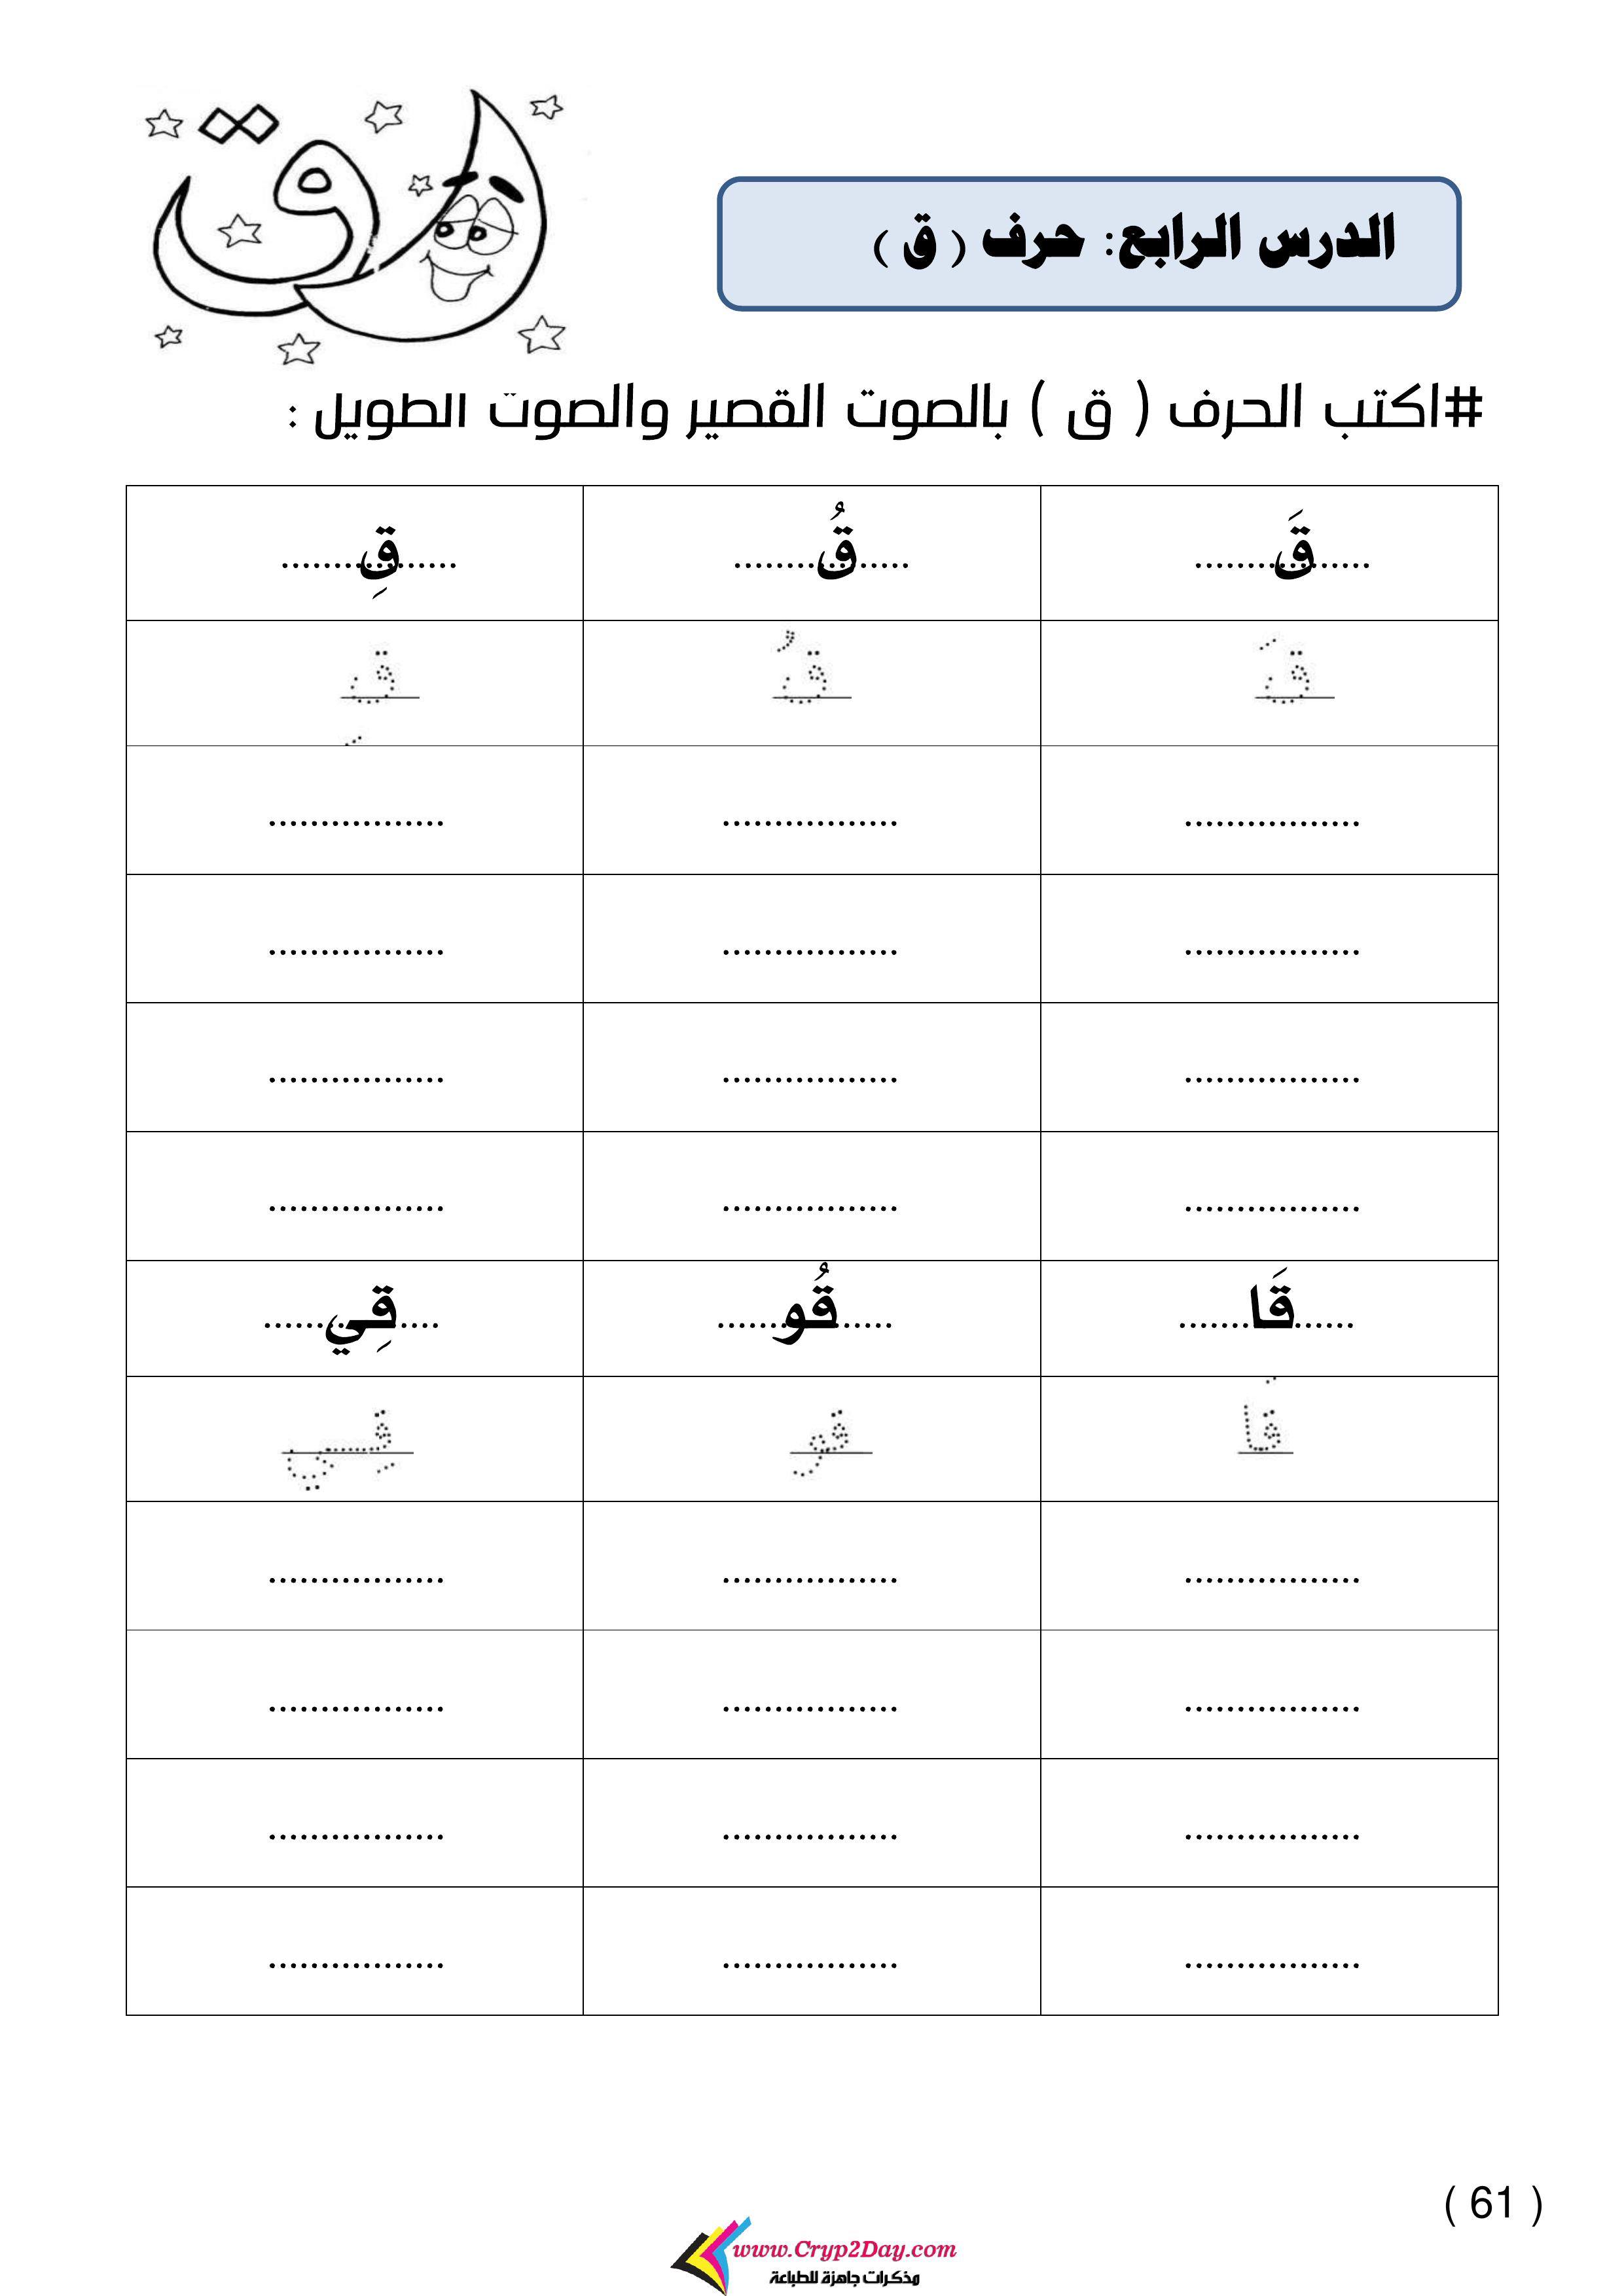 ق
الدرس الرابع: حرف ( ق )
#اكتب الحرف ( ق ) بالصوت القصير والصوت الطويل :
قَ................ قُ................ قِ................
قَ قُ قِ
................. ................. .................
................. ................. .................
................. ................. .................
................. ................. .................
قَا................ قُو................ قِي................
قَا قو قِي
................. ................. .................
................. ................. .................
................. ................. .................
................. ................. .................
( 61 )
www.Cryp2Day.com
مذكرات جاهزة للطباعة